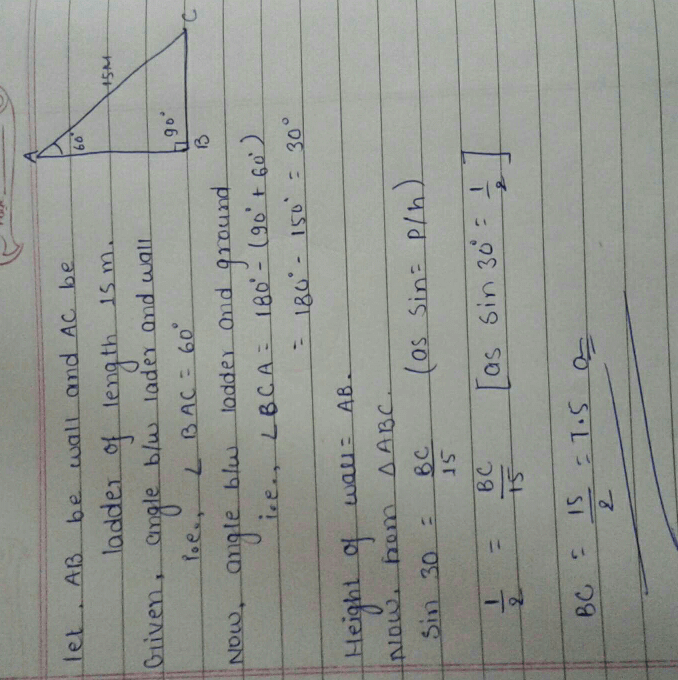 A
60°
15M
90°
B
C
let, AB be wall and AC be
ladder of length 15m.
Given, angle b/w lader and wall
i.e., ∠ BAC = 60°
Now, angle b/w ladder and ground
i.e., ∠BCA = 180° - (90° + 60°)
= 180° - 150° = 30°
Height of wall = AB.
Now, from △ABC.
Sin 30 = BC/15 (as sin = P/h)
1/2 = BC/15 [as sin 30° = 1/2]
BC = 15/2 = 7.5